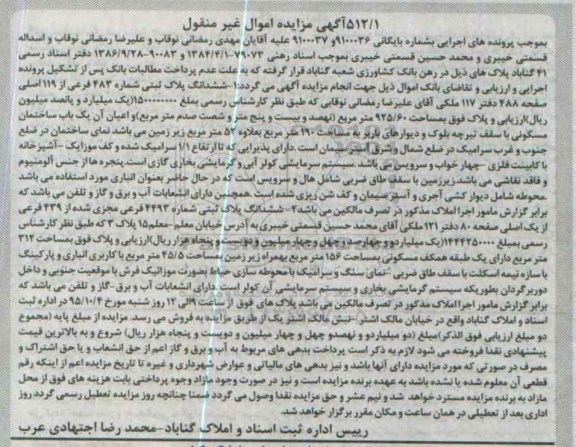 ۵۱۲/۱آگهی مزایده اموال غیر منقول
بموجب پرونده های اجرایی بشماره بایگانی ۹۱۰۰۰۳۶و۹۱۰۰۰۳۷ علیه آقایان مهدی رمضانی نوقاب و علیرضا رمضانی نوقاب و اسداله
قسمتی خیبری و محمد حسین قسمتی خیبری بموجب اسناد رهنی ۷۹۰۷۳–۱۳۸۴/۴/۱ و ۹۰۰۸۳–۱۳۸۶/۹/۲۸ دفتر اسناد رسمی
۴۱ گناباد پلاک های ذیل در رهن بانک کشاورزی شعبه گناباد قرار گرفته که به علت عدم پرداخت مطالبات بانک پس از تشکیل پرونده
اجرایی و ارزیابی و تقاضای بانک اموال ذیل جهت انجام مزایده آگهی می گردد:۱–ششدانگ پلاک ثبتی شماره ۴۸۳ فرعی از ۱۱۹ اصلی
صفحه ۴۸۸ دفتر ۱۱۷ ملکی آقای علیرضا رمضانی نوقابی که طبق نظر کارشناس رسمی بمبلغ ۱۵۰۰۰۰۰۰۰۰(یک میلیارد و پانصد میلیون
ریال)ارزیابی و پلاک فوق بمساحت ۹۲۵/۶۰ متر مربع (نهصد و بیست و پنج متر و شصت صدم متر مربع)و اعیان آن یک باب ساختمان
مسکونی با سقف تیرچه بلوک و دیوارهای باربر به مساحت ۱۹۰ متر مربع بعلاوه ۵۲ متر مربع زیر زمین می باشد نمای ساختمان در ضلع
جنوب و غرب سرامیک در ضلع شمال و شرق آستر سیمان است.دارای پذیرایی که تا ارتفاع ۱/۱ سرامیک شده و کف موزائیک –آشپزخانه
با کابینت فلزی –چهار خواب و سرویس می باشد.سیستم سرمایشی کولر آبی و گرمایشی بخاری گازی است.پنجره ها از جنس آلومنیوم
و فاقد نقاشی می باشد.زیرزمین با سقف طاق ضربی شامل هال و سرویس است که در حال حاضر بعنوان انباری مورد استفاده می باشد
.محوطه شامل دیوار کشی آجری و آستر سیمان و کف شن ریزی شده است.همچنین دارای انشعابات آب و برق و گاز و تلفن می باشد که
برابر گزارش مامور اجرا املاک مذکور در تصرف مالکین می باشد۲–ششدانگ پلاک ثبتی شماره ۴۴۹۳ فرعی مجزی شده از ۴۳۹ فرعی
از یک اصلی صفحه ۸۰ دفتر ۱۲۱ ملکی آقای محمد حسین قسمتی خیبری به آدرس خیابان معلم–معلم۱۵ پلاک ۳ که طبق نظر کارشناس
رسمی بمبلغ ۱۴۴۴۲۵۰۰۰۰(یک میلیارد و چهارصد و چهل و چهار میلیون و دویست و پنجاه هزار ریال)ارزیابی و پلاک فوق بمساحت ۳۱۲
متر مربع دارای یک طبقه همکف مسکونی بمساحت ۱۵۶ متر مربع بهمراه زیر زمین بمساحت ۴۵/۵ متر مربع با کاربری انباری و پارکینگ
با سازه نیمه اسکلت با سقف طاق ضربی –نمای سنگ و سرامیک با محوطه سازی حیاط بصورت موزائیک فرش با موقعیت جنوبی و داخل
دوربرگردان بطوریکه سیستم گرمایشی بخاری و سیستم سرمایشی آن کولر است.دارای انشعابات آب و برق–گاز و تلفن می باشد که
برابر گزارش مامور اجرا املاک مذکور در تصرف مالکین می باشد پلاک های فوق از ساعت ۹الی ۱۲ روز شنبه مورخ ۹۵/۱۰/۴ در اداره ثبت
اسناد و املاک گناباد واقع در خیابان مالک اشتر –نبش مالک اشتر یک از طریق مزایده به فروش می رسد. مزایده از مبلغ پایه (مجموع
دو مبلغ ارزیابی فوق الذکر)مبلغ (دو میلیاردو و نهصدو چهل و چهار میلیون و دویست و پنجاه هزار ریال) شروع و به بالاترین قیمت
پیشنهادی نقدا فروخته می شود لازم به ذکر است پرداخت بدهی های مربوط به آب و برق و گاز اعم از حق انشعاب و یا حق اشتراک و
مصرف در صورتی که مورد مزایده دارای آنها باشد و نیز بدهی های مالیاتی و عوارض شهرداری و غیره تا تاریخ مزایده اعم از اینکه رقم
قطعی آن معلوم شده یا نشده باشد به عهده برنده مزایده است و نیز در صورت وجود مازاد وجوه پرداختی بابت هزینه های فوق از محل
مازاد به برنده مزایده مسترد خواهد شد و نیم عشر و حق مزایده نقدا وصول می گردد ضمنا چنانچه روز مزایده تعطیل رسمی گردد روز
اداری بعد از تعطیلی در همان ساعت و مکان مقرر برگزار خواهد شد.
رییس اداره ثبت اسناد و املاک گناباد–محمد رضا اجتهادی عرب